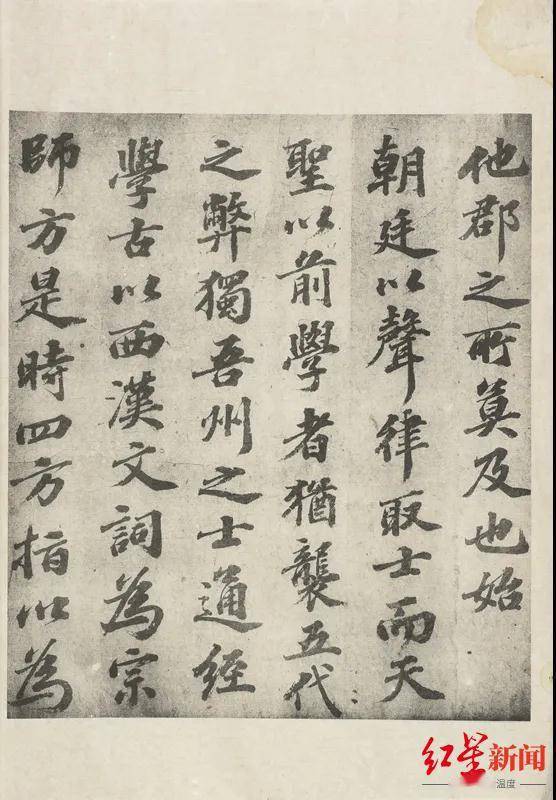 他郡之所莫及也始
朝廷以聲律取士而天
聖以前學者猶襲五代
之弊獨吾州之士通經
學古以西漢文詞為宗
師方是時四方指以為
红星新闻
温度